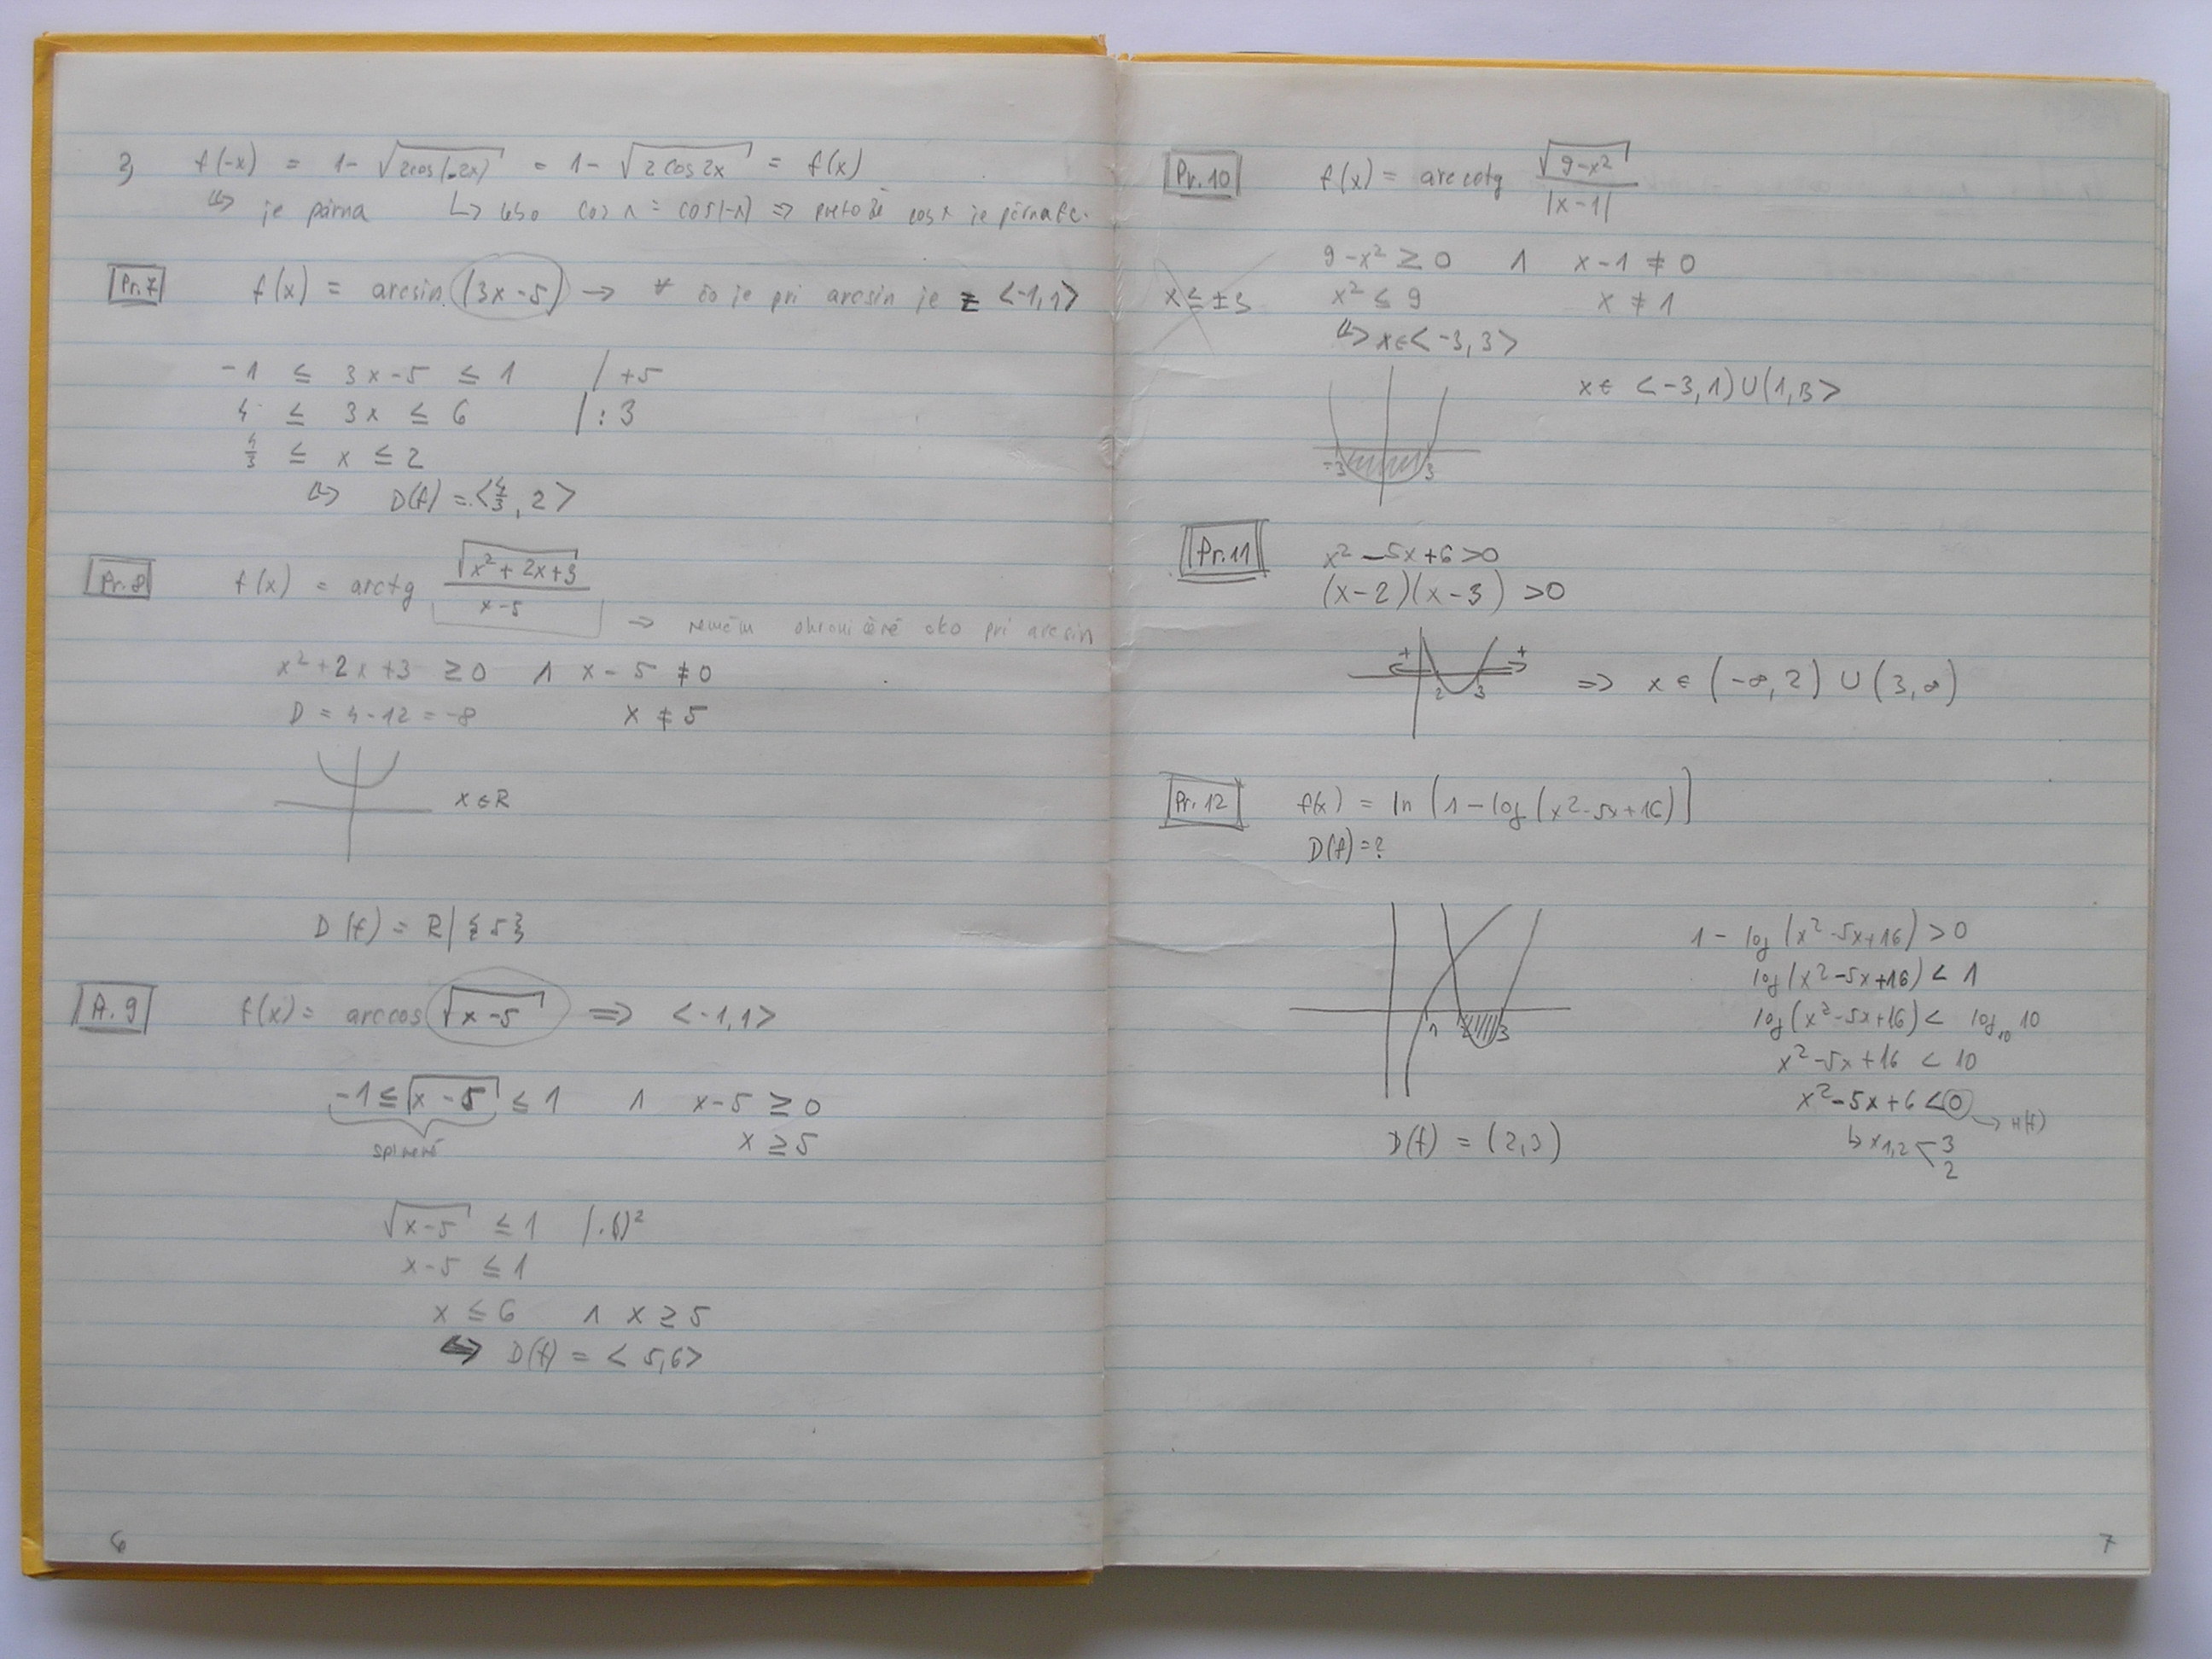 3, f(-x) = 1- √2cos(-2x) = 1- √2 cos 2x = f(x)
↳ je párna ↳ lebo cos 1 = cos(-1) => pretože cos x je párna fc.
Pr.7 f(x) = arcsin (3x-5) → čo je pri arcsin je z <-1,1>
-1 ≤ 3x-5 ≤ 1 / +5
4 ≤ 3x ≤ 6 / : 3
4/3 ≤ x ≤ 2
↳ D(f) = <4/3, 2>
Pr.8 f(x) = arctg √x²+2x+3 / x-5
=> nemám ohraničené ako pri arcsin
x²+2x+3 ≥0 ∧ x-5 ≠0
D = 4-12 = -8 x ≠ 5
x ∈ R
D(f) = R | {5}
Pr.9 f(x) = arccos √x-5 => <-1,1>
-1 ≤ √x-5 ≤ 1 ∧ x-5 ≥ 0
splnené x ≥ 5
√x-5 ≤ 1 /.()²
x-5 ≤ 1
x ≤ 6 ∧ x ≥ 5
↳ D(f) = <5,6>
6
Pr.10 f(x) = arccotg √9-x² / |x-1|
9-x² ≥ 0 ∧ x-1 ≠ 0
x ≤ ±3 x² ≤ 9 x ≠ 1
↳ x∈<-3,3>
x∈ <-3,1) U (1,3>
-3 3
Pr.11 x² -5x+6 >0
(x-2)(x-3) >0
+ +
2 3 => x ∈ (-∞,2) U (3,∞)
Pr.12 f(x) = ln [1-log(x²-5x+16)]
D(f)=?
1 - log (x²-5x+16) > 0
log (x²-5x+16) < 1
log (x²-5x+16) < log₁₀ 10
1 2 3
x²-5x+16 < 10
x²-5x+6 <0 → H(f)
D(f) = (2,3) ↳ x1,2 < 3
2
7